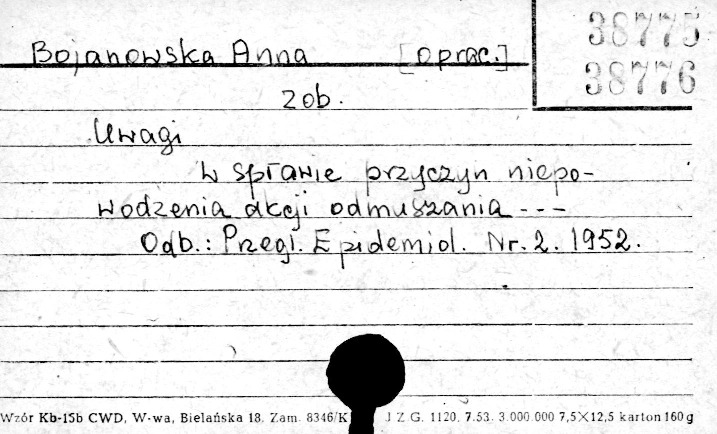 38775
38776
Bojanowska Anna [oprac.]
zob.
Uwagi
w sprawie przyczyn niepo-
wodzenia akcji odmuszania ---
Odb.: Przegl. Epidemiol. Nr. 2. 1952.
Wzór Kb-15b CWD, W-wa, Bielańska 18. Zam. 8346/K J Z G. 1120. 7.53. 3.000.000 7,5×12,5 karton 160 g